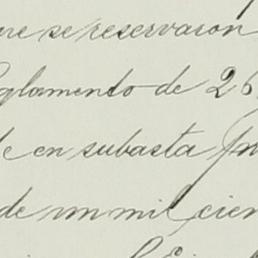 que se reservaron
Reglamento de 26
de en subasta pú
de un mil, cien